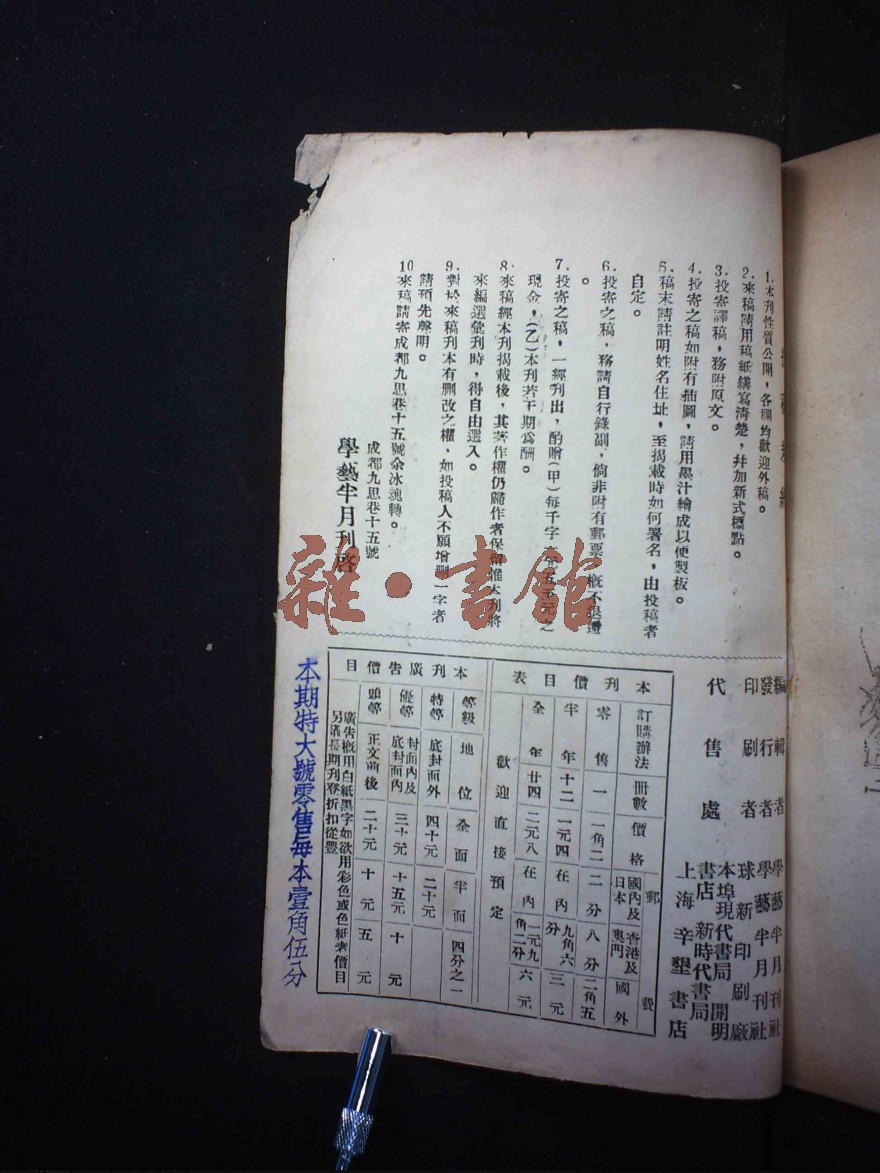 1.本刊性質公開，各欄均歡迎外稿。
2.來稿請用稿紙繕寫清楚，幷加新式標點。
3.投寄譯稿，務附原文。
4.投寄之稿如附有插圖，請用墨汁繪成以便製板。
5.稿末請註明姓名住址，至揭載時如何署名，由投稿者
自定。
6.投寄之稿，務請自行錄副，倘非附有郵票，概不退還
。
7.投寄之稿，一經刊出，酌贈(甲)每千字
現金，(乙)本刊若干期爲酬。
8.來稿經本刊揭載後，其著作權仍歸作者保留惟本刊將
來編選彙刊時，得自由選入。
9.對於來稿刊本有删改之權，如投稿人不願增删一字者
請預先聲明。
10來稿請寄成都九思巷十五號余冰魂轉。
成都九思巷十五號
學藝半月刊啓
雜·書館
編輯者 學藝半月刊社
發行者 學藝半月刊社
印刷者 球新印刷廠
代售處 本埠現代書局 開明
書店 新時代書局
上海辛墾書店
本刊價目表
訂購辦法 冊數 價格 郵費
國內及日本 香港及澳門 國外
零售 一 一角二 二分 八分 二角五
半年 十二 一元四 在內 九角六分 三元
全年 廿四 二元八 在內 一元九角二分 六元
歡迎直接預定
本刊廣告價目
等級 地位 全面 半面 四分之一
特等 底封面外 四十元 二十元
優等 封面內及底封面內 三十元 十五元 十元
頭等 正文前後 二十元 十元 五元
廣告概用白紙黑字如欲用彩色或色紙者價目
另議長期刊登折扣從豐
本期特大號零售每本壹角伍分